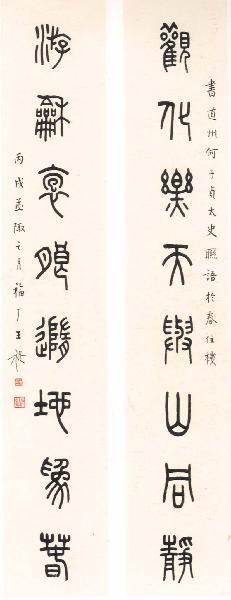 觀化樂天與山同靜
書道州何子貞太史聯語於春住樓
游龢朖隨地為春
丙戌孟陬之月福厂王禔